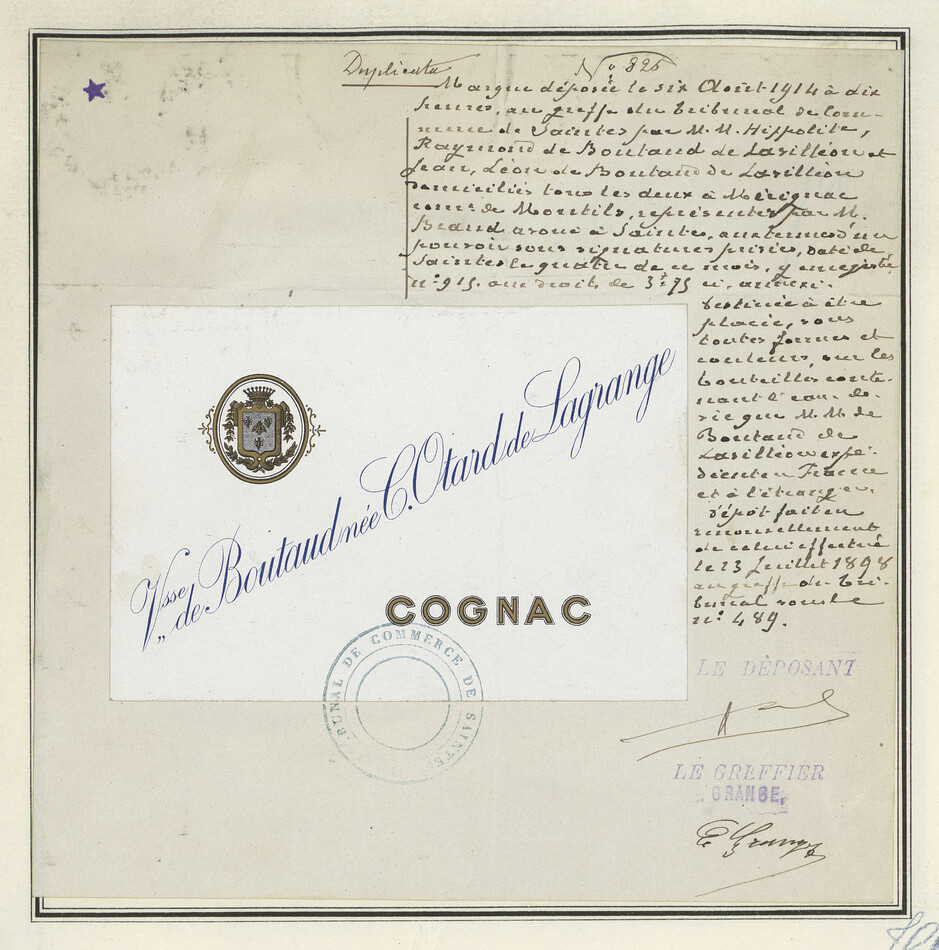 Duplicata
N° 826
Marque déposée le six Août 1914 à dix
heures, au greffe du Tribunal de Com-
merce de Saintes par M. M. Hippolite,
Raymond de Boutaud de Lavilléon et
Jean, Léon de Boutaud de Lavilléon
domiciliés tous les deux à Mérignac
comne de Montils, représentés par M.
Beaud avoué à Saintes, aux termes d'un
pouvoir sous signatures privées, daté de
Saintes le quatre de ce mois, y enregistré
n° 915. aux droits de 3f.75 ci. annexé.
Destinée à être
placée, sous
toutes formes et
couleurs, sur les
bouteilles conte-
nant l'eau-de-
vie que M. M. de
Boutaud de
Lavilléon expé-
dient en France
et à l'étranger.
dépôt fait en
renouvellement
de celui effectué
le 23 Juillet 1898
au greffe du Tri-
bunal sous le
n° 489.
Vsse de Boutaud née C. Otard de Lagrange
COGNAC
TRIBUNAL DE COMMERCE DE SAINTES
LE DÉPOSANT
LE GREFFIER
GRANGE,
E Grange